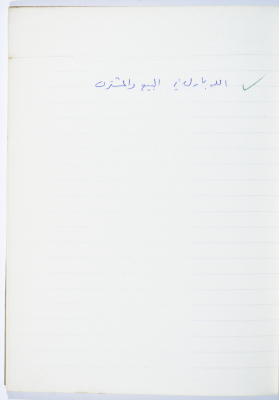 الله بارك في البيع والمشترى